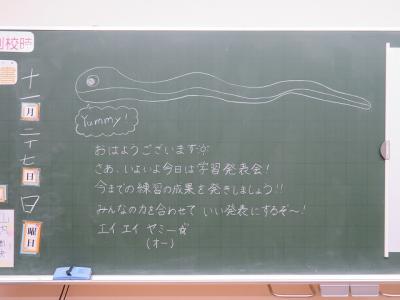 時校
書
十一
月
二十七
日
日
曜日
Yummy!
おはようございます☼
さあ、いよいよ今日は学習発表会!
今までの練習の成果を発きしましょう!!
みんなの力を合わせて いい発表にするぞ〜!
エイ エイ ヤミー☆
(オー)